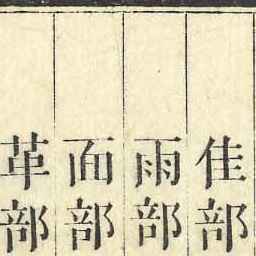 隹部
雨部
面部
革部